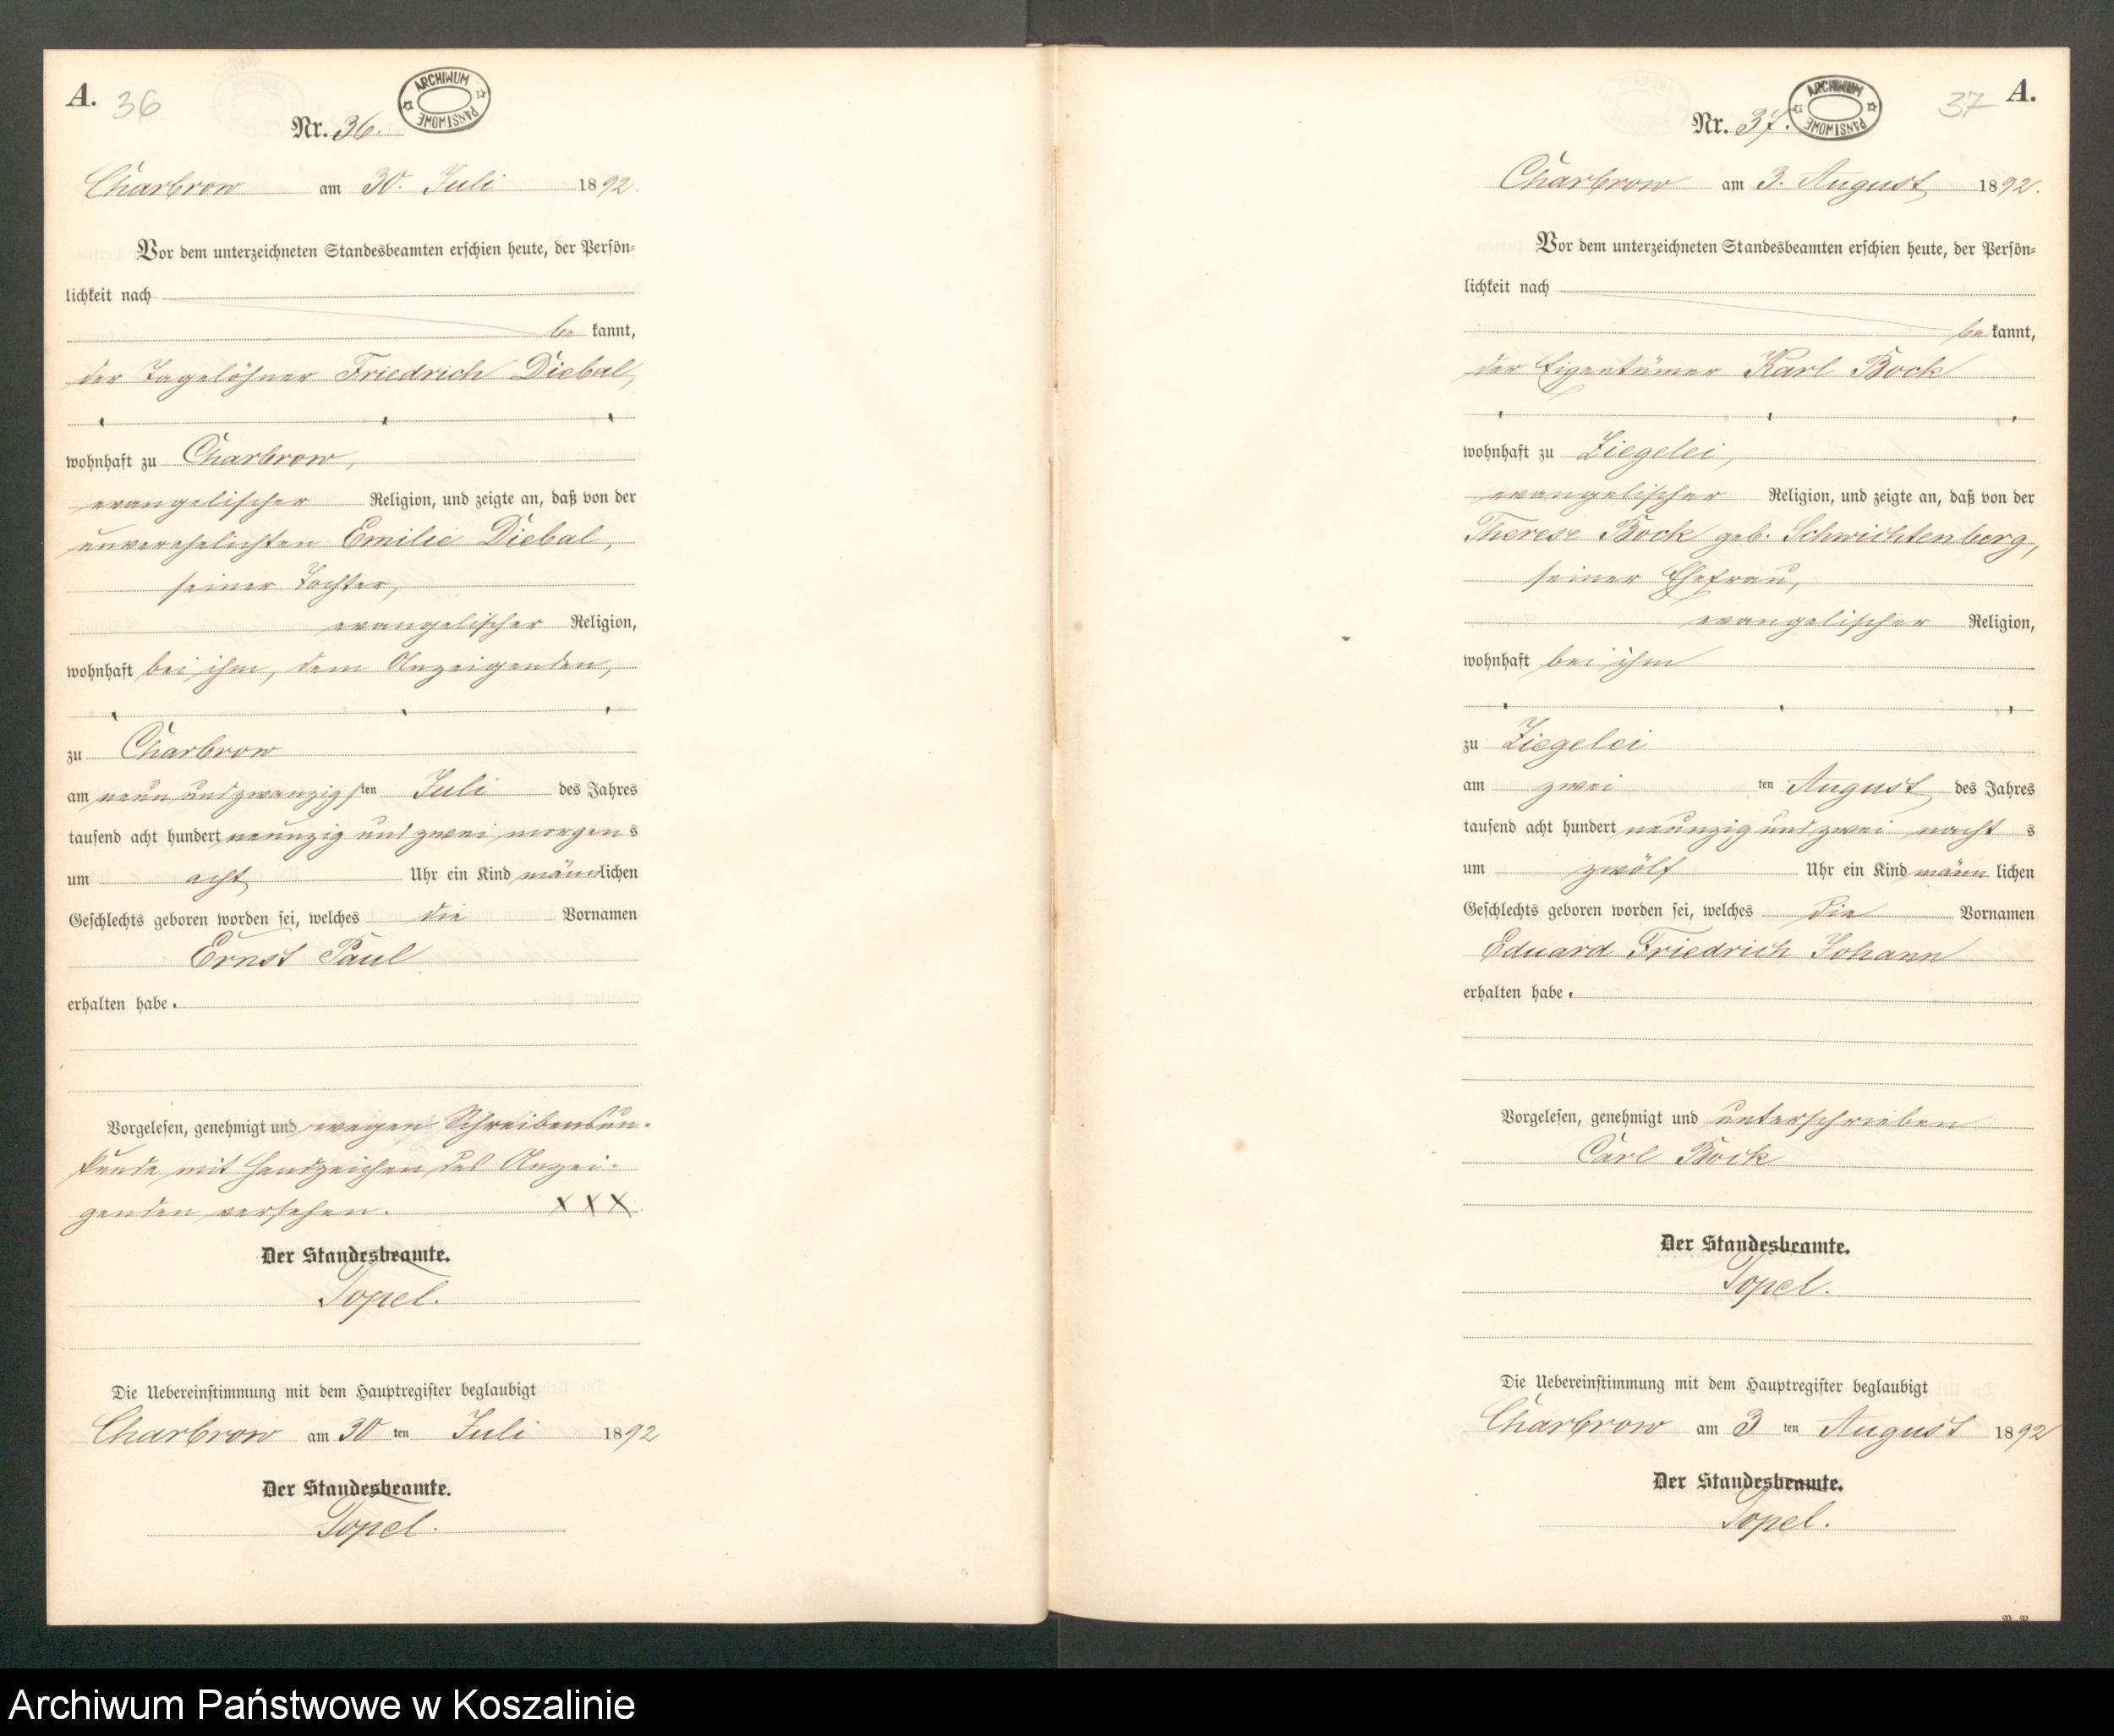 A. 36
ARCHIWUM PAŃSTWOWE
Nr. 36.
Charbrow am 30. Juli 1892.
Vor dem unterzeichneten Standesbeamten erschien heute, der Persön-
lichkeit nach
be kannt,
der Tagelöhner Friedrich Diebal,
wohnhaft zu Charbrow,
evangelischer Religion, und zeigte an, daß von der
unverehelichten Emilie Diebal,
seiner Tochter,
evangelischer Religion,
wohnhaft bei ihm, dem Anzeigenden,
zu Charbrow
am neun und zwanzigsten Juli des Jahres
tausend acht hundert neunzig und zwei morgens
um acht Uhr ein Kind männlichen
Geschlechts geboren worden sei, welches die Vornamen
Ernst Paul
erhalten habe.
Vorgelesen, genehmigt und wegen Schreibensun-
kunde mit Handzeichen des Anzei-
genden versehen. XXX
Der Standesbeamte.
Topel.
Die Uebereinstimmung mit dem Hauptregister beglaubigt
Charbrow am 30 ten Juli 1892
Der Standesbeamte.
Topel.
37 A.
ARCHIWUM PAŃSTWOWE
Nr. 37.
Charbrow am 3. August 1892.
Vor dem unterzeichneten Standesbeamten erschien heute, der Persön-
lichkeit nach
be kannt,
der Eigentümer Karl Bock
wohnhaft zu Ziegelei,
evangelischer Religion, und zeigte an, daß von der
Therese Bock geb. Schwichtenberg,
seiner Ehefrau,
evangelischer Religion,
wohnhaft bei ihm
zu Ziegelei
am zwei ten August des Jahres
tausend acht hundert neunzig und zwei nachts
um zwölf Uhr ein Kind männlichen
Geschlechts geboren worden sei, welches die Vornamen
Eduard Friedrich Johann
erhalten habe.
Vorgelesen, genehmigt und unterschrieben
Carl Bock
Der Standesbeamte.
Topel.
Die Uebereinstimmung mit dem Hauptregister beglaubigt
Charbrow am 3 ten August 1892
Der Standesbeamte.
Topel.
Archiwum Państwowe w Koszalinie